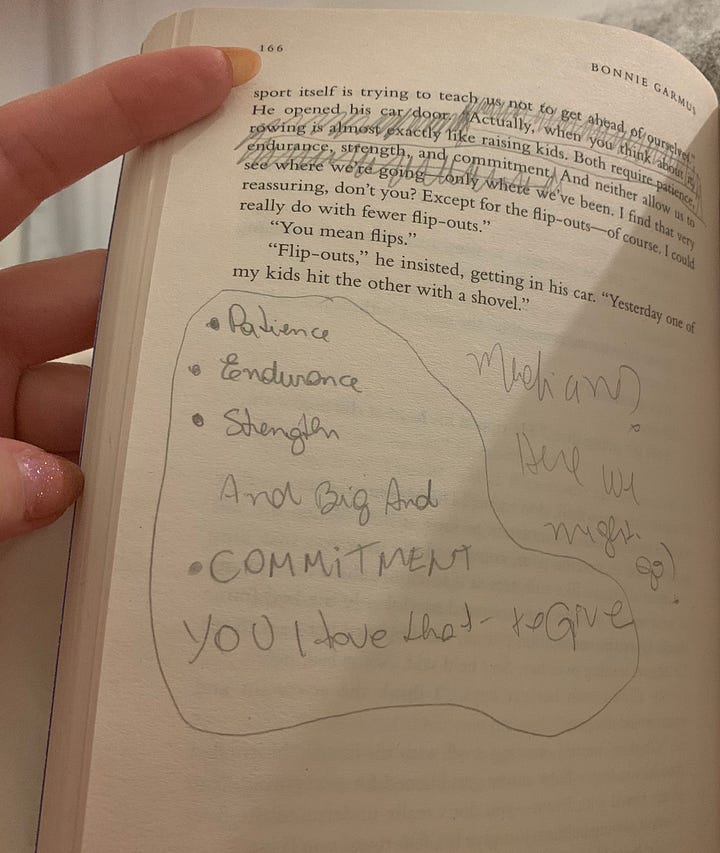 166
BONNIE GARMUS
sport itself is trying to teach us not to get ahead of ourselves."
He opened his car door. "Actually, when you think about it,
rowing is almost exactly like raising kids. Both require patience,
endurance, strength, and commitment. And neither allow us to
see where we're going—only where we've been. I find that very
reassuring, don't you? Except for the flip-outs—of course. I could
really do with fewer flip-outs."
"You mean flips."
"Flip-outs," he insisted, getting in his car. "Yesterday one of
my kids hit the other with a shovel."
• Patience
• Endurance
• Strength
And Big And
• COMMITMENT
YOU that to Give
Here we
might
go